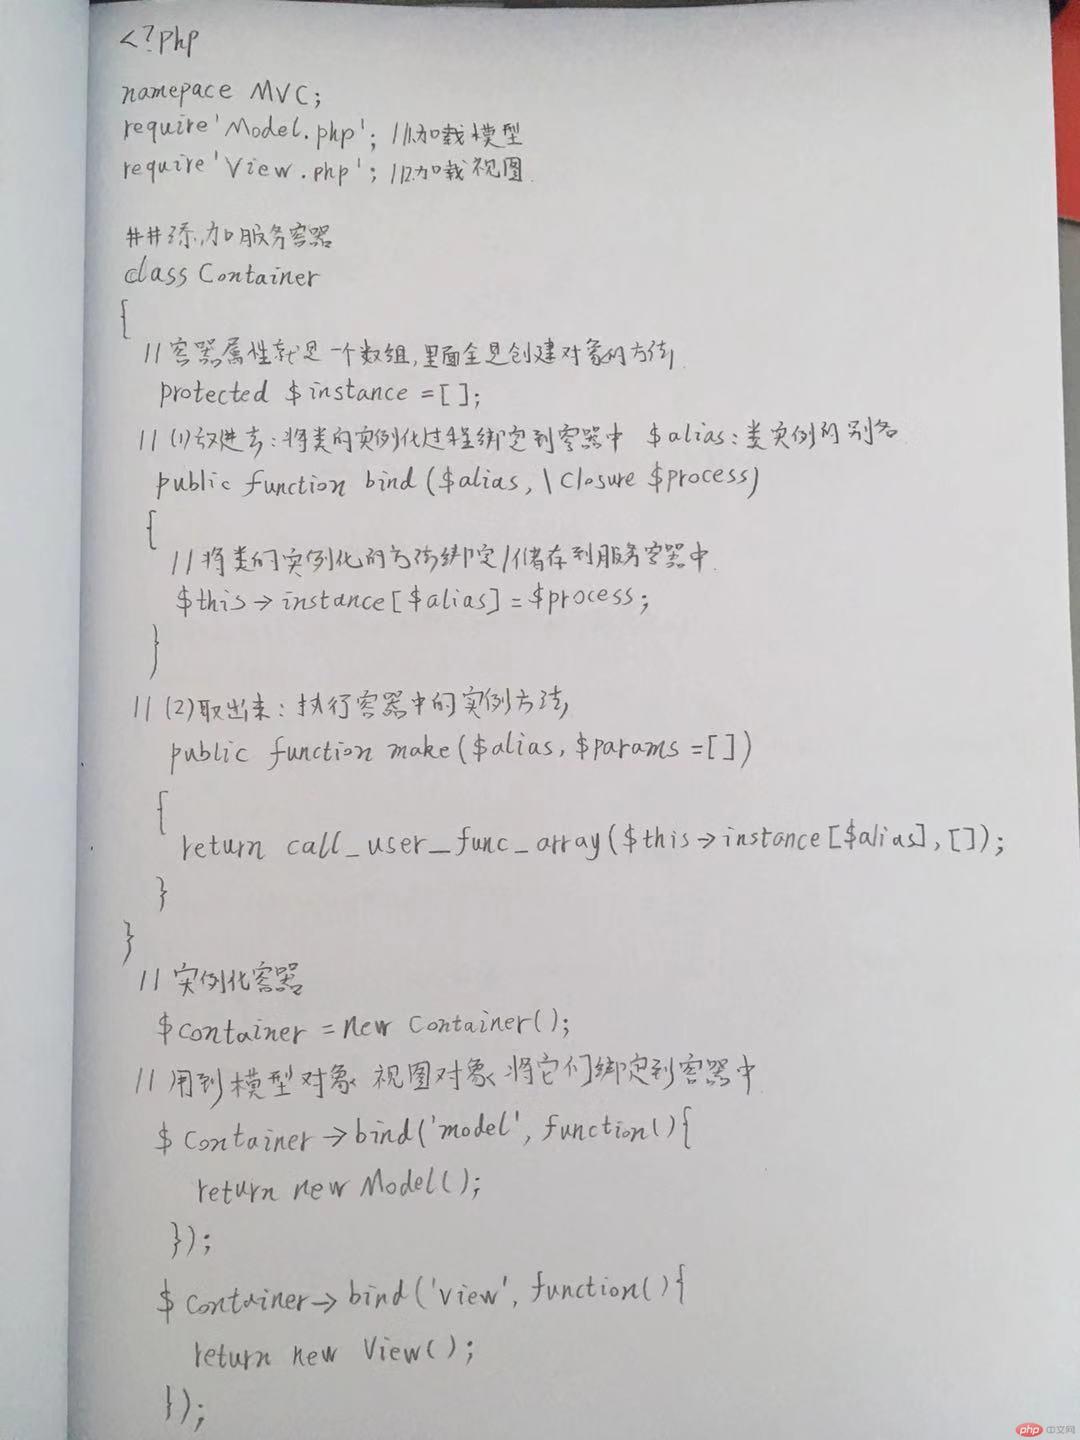 <?php
namepace MVC;
require'Model.php'; //1.加载模型
require'View.php'; //2.加载视图.
##添加服务容器
class Container
{
//容器属性就是一个数组,里面全是创建对象的方法.
protected $instance =[];
//(1)放进去:将类的实例化过程绑定到容器中 $alias:类实例的别名
public function bind($alias, \Closure $process)
{
//将类的实例化的方法绑定/储存到服务容器中.
$this→instance[$alias]=$process;
}
//(2)取出来:执行容器中的实例方法,
public function make($alias, $params =[])
{
return call_user_func_array($this→instance[$alias],[]);
}
}
//实例化容器
$container =new Container();
//用到模型对象 视图对象 将它们绑定到容器中
$container→bind('model', function(){
return new Model();
});
$container→bind('view', function(){
return new View();
});
php 中文网